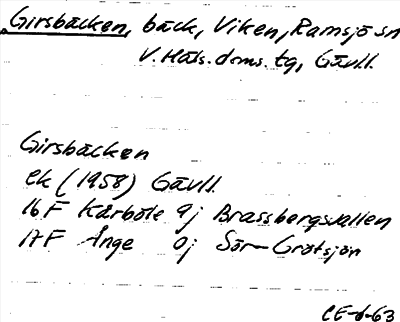 Girsbäcken, bäck, Viken, Ramsjö sn
V. Häls. doms. tg, Gävll.
Girsbäcken
ek (1958) Gävll.
16F Kårböle 9j Brassbergsvallen
17F Ånge 0j Sör-Grötsjön
CE-6-63